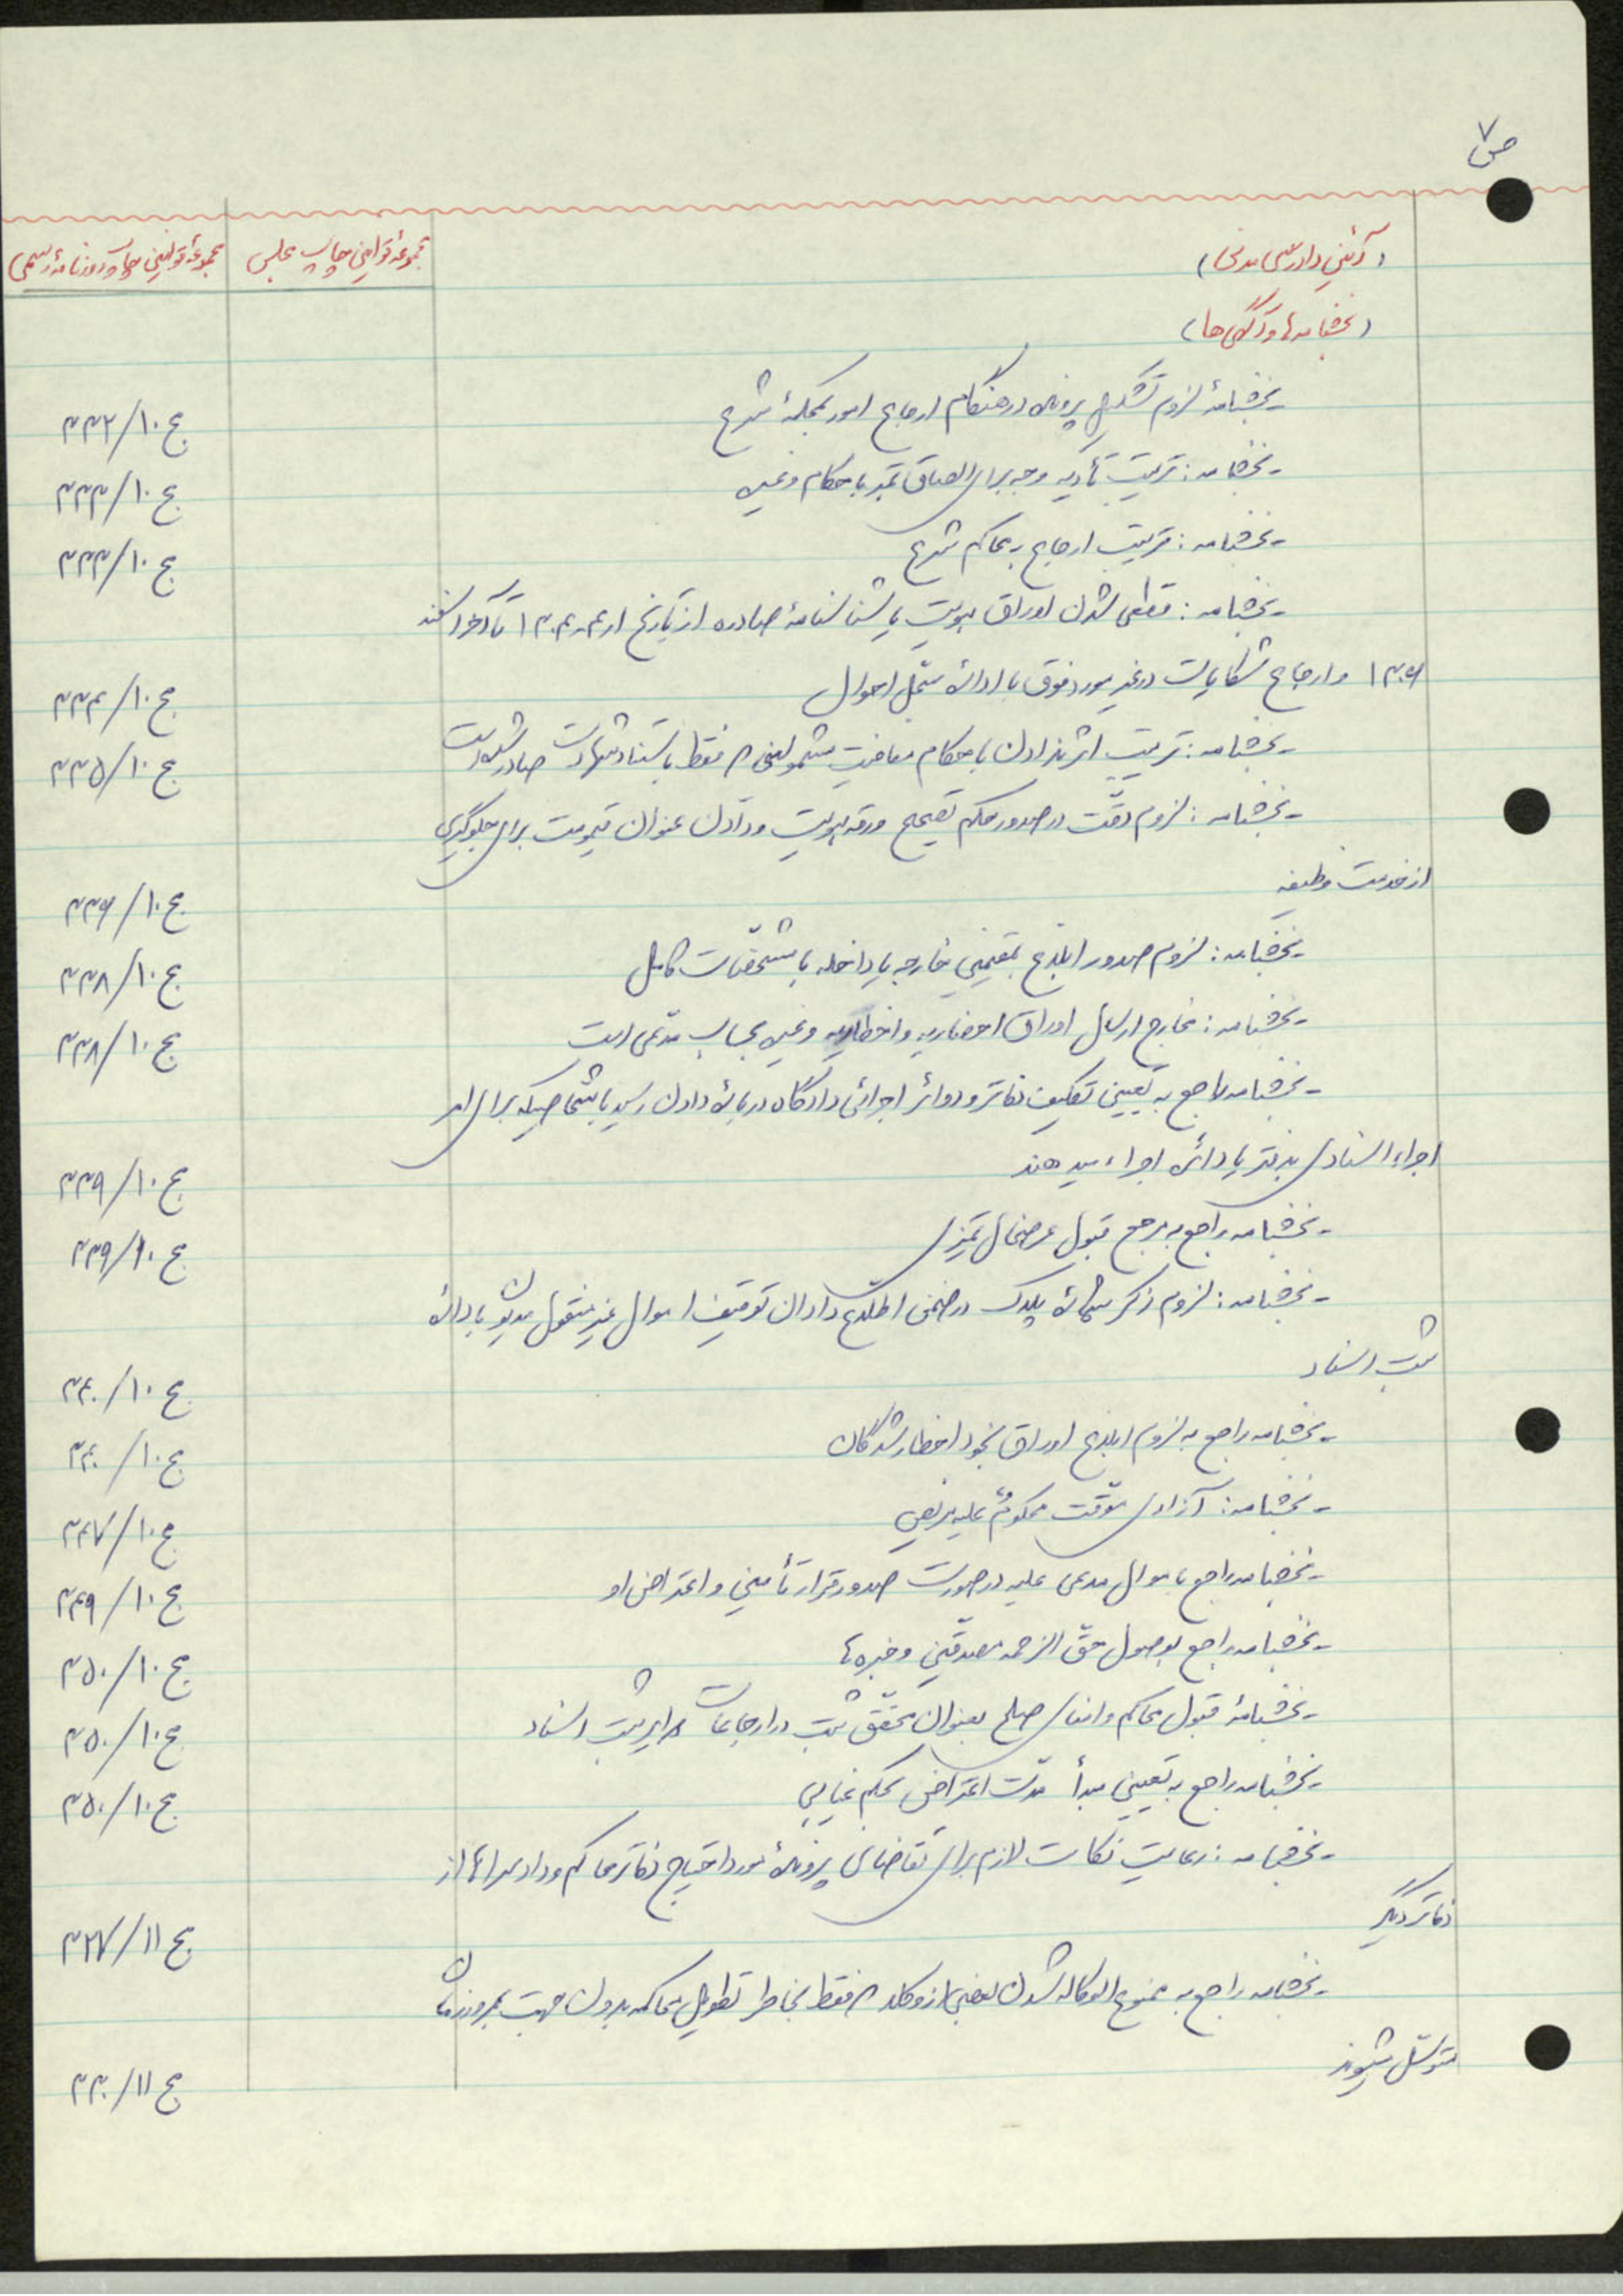 ص ۷
(آئین دادرسی مدنی)
مجموعهٔ قوانین چاپ مجلس
مجموعهٔ قوانین چاپ روزنامهٔ رسمی
(بخشنامه‌ها و آگهی‌ها)
- بخشنامهٔ لزوم تشکیل پرونده در هنگام ارجاع امور بمحکمهٔ شرع
ج ۱۰/۳۳۲
- بخشنامه: ترتیب تأدیه وجه برای الصاق تمبر باحکام و غیره
ج ۱۰/۳۳۳
- بخشنامه: ترتیب ارجاع به محاکم شرع
ج ۱۰/۳۳۳
- بخشنامه: قطعی شدن اوراق هویت یا شناسنامهٔ صادره از تاریخ ار۴ر۱۳۰۴ تا آخر اسفند
۱۳۰۶ و ارجاع شکایات در غیر مورد فوق با ادارهٔ سجل احوال
ج ۱۰/۳۳۴
- بخشنامه: ترتیب اثر ندادن باحکام معافیت مشمولینی که فقط باستناد شهادت صادر شده است
ج ۱۰/۳۳۵
- بخشنامه: لزوم دقّت در صدور حکم تصحیح ورقه هویت و دادن عنوان قیومیت برای جلوگیری
از خدمت وظیفه
ج ۱۰/۳۳۶
- بخشنامه: لزوم صدور ابلاغ بمقیمین خارجه یا داخله با مشخّصات کامل
ج ۱۰/۳۳۸
- بخشنامه: مخارج ارسال اوراق احضاریه و اخطاریه و غیره بحساب مدّعی است
ج ۱۰/۳۳۸
- بخشنامه راجع به تعیین تکلیف دفاتر و دوائر اجرائی دادگاه دربارهٔ دادن رسید باشخاصیکه برای امر
اجراء اسنادی بدفتر یا دائره اجراء میدهند
ج ۱۰/۳۳۹
- بخشنامه راجع به مرجع قبول عرضحال تمیزی
ج ۱۰/۳۳۹
- بخشنامه: لزوم ذکر شمارهٔ پلاک در ضمن اطلاع دادن توقیف اموال غیر منقول مدیون بادارهٔ
ثبت اسناد
ج ۱۰/۳۴۰
- بخشنامه راجع به لزوم ابلاغ اوراق بخود اخطار شدگان
ج ۱۰/۳۴۰
- بخشنامه: آزادی موقّت محکومٌ علیه مریض
ج ۱۰/۳۴۷
- بخشنامه راجع باموال مدعی علیه در صورت صدور قرار تأمین و اعتراض او
ج ۱۰/۳۴۹
- بخشنامه راجع بوصول حقّ الزحمه مصدقین و خبره‌ها
ج ۱۰/۳۵۰
- بخشنامهٔ قبول محاکم و امنای صلح بعنوان محقّق ثبت در ارجاعات دوایر ثبت اسناد
ج ۱۰/۳۵۰
- بخشنامه راجع به تعیین مبدأ مدّت اعتراض بحکم غیابی
ج ۱۰/۳۵۰
- بخشنامه: رعایت نکات لازم برای تقاضای پروندهٔ مورد احتیاج دفاتر محاکم و دادسراها از
دفاتر دیگر
ج ۱۱/۳۲۷
- بخشنامه راجع به ممنوع الوکاله شدن بعضی از وکلا که فقط بخاطر تطویل محاکمه بدون جهت بمرور زمان
متوسّل میشوند
ج ۱۱/۳۳۰